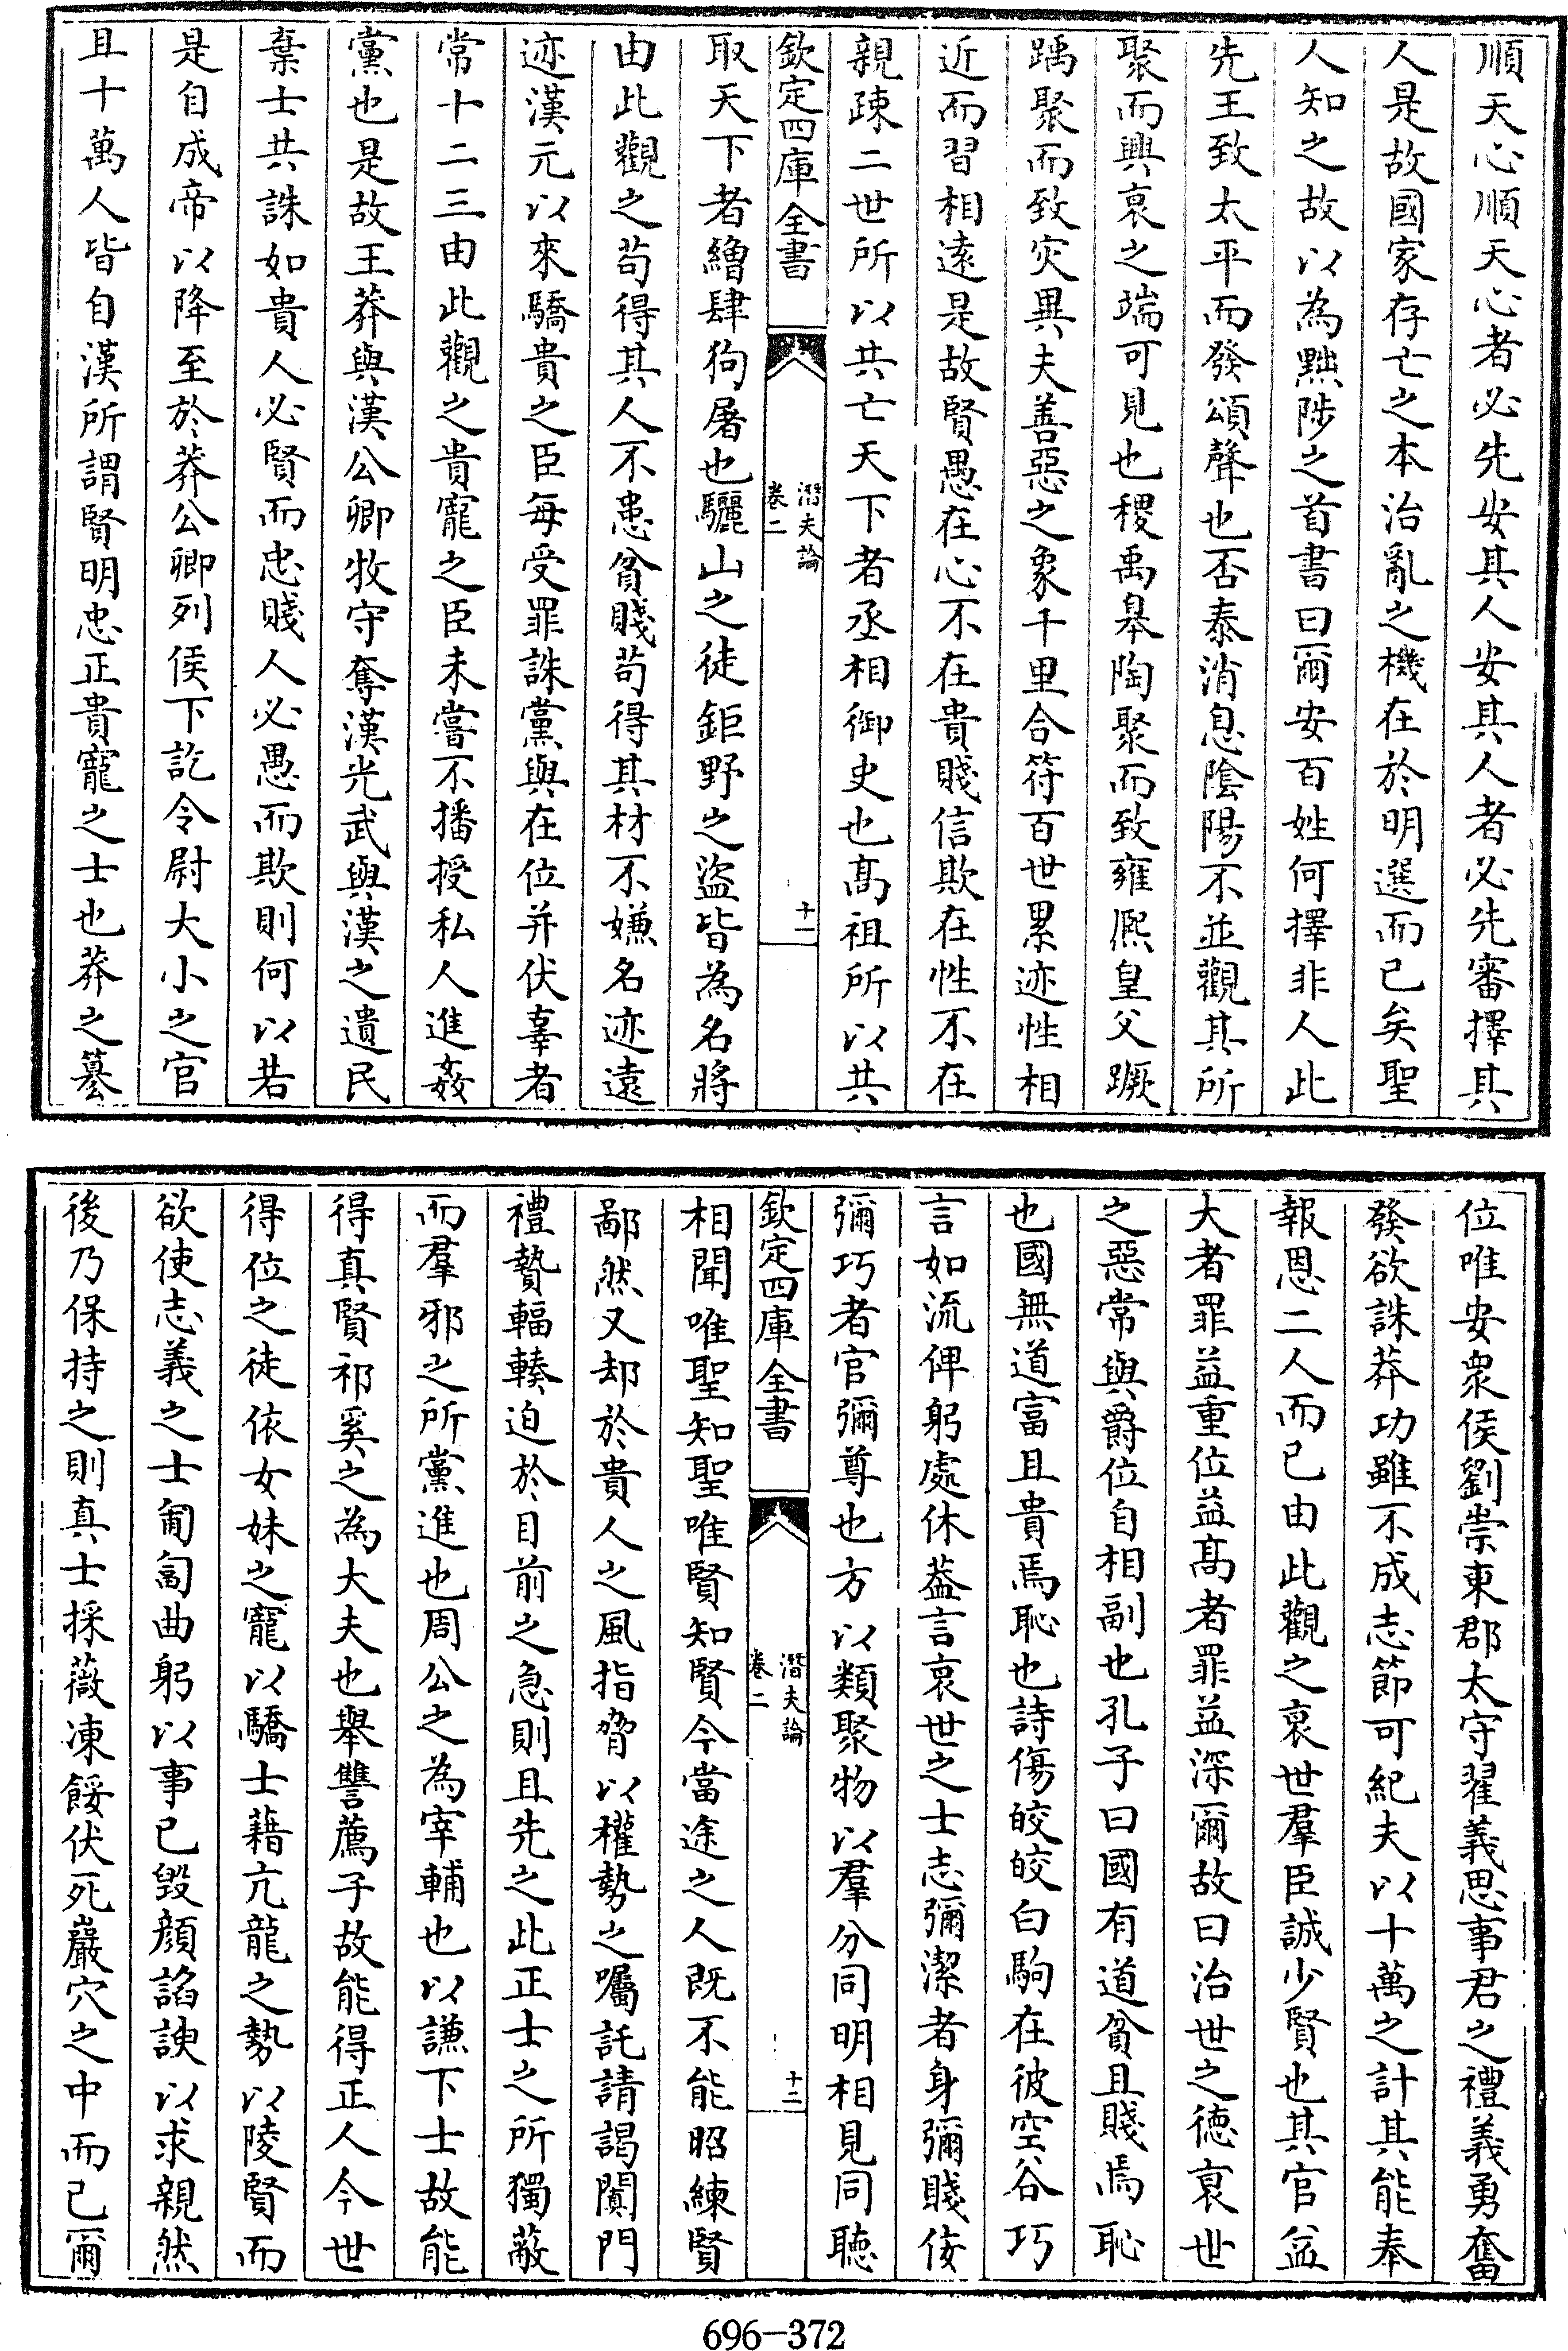 順天心順天心者必先安其人安其人者必先審擇其
人是故國家存亡之本治亂之機在於明選而已矣聖
人知之故以為黜陟之首書曰爾安百姓何擇非人此
先王致太平而發頌聲也否泰消息陰陽不並觀其所
聚而興衰之端可見也稷禹臯陶聚而致雍熈皇父蹶
踽聚而致灾異夫善惡之象千里合符百世累迹性相
近而習相遠是故賢愚在心不在貴賤信欺在性不在
親疎二世所以共亡天下者丞相御史也髙祖所以共
欽定四庫全書
潛夫論
卷二
十一
取天下者繒肆狗屠也驪山之徒鉅野之盜皆為名將
由此觀之苟得其人不患貧賤苟得其材不嫌名迹遠
迹漢元以來驕貴之臣每受罪誅黨與在位并伏辜者
常十二三由此觀之貴寵之臣未嘗不播授私人進姦
黨也是故王莽與漢公卿牧守奪漢光武與漢之遺民
棄士共誅如貴人必賢而忠賤人必愚而欺則何以若
是自成帝以降至於莽公卿列侯下訖令尉大小之官
且十萬人皆自漢所謂賢明忠正貴寵之士也莽之簒
位唯安衆侯劉崇東郡太守翟義思事君之禮義勇奮
發欲誅莽功雖不成志節可紀夫以十萬之計其能奉
報恩二人而已由此觀之衰世羣臣誠少賢也其官益
大者罪益重位益髙者罪益深爾故曰治世之德衰世
之惡常與爵位自相副也孔子曰國有道貧且賤焉恥
也國無道富且貴焉恥也詩傷皎皎白駒在彼空谷巧
言如流俾躬處休葢言衰世之士志彌潔者身彌賤佞
彌巧者官彌尊也方以類聚物以羣分同明相見同聽
欽定四庫全書
潛夫論
卷二
十二
相聞唯聖知聖唯賢知賢今當途之人既不能昭練賢
鄙然又却於貴人之風指脅以權勢之囑託請謁闐門
禮贄輻輳迫於目前之急則且先之此正士之所獨蔽
而羣邪之所黨進也周公之為宰輔也以謙下士故能
得真賢祁奚之為大夫也舉讐薦子故能得正人今世
得位之徒依女妹之寵以驕士藉亢龍之勢以陵賢而
欲使志義之士匍匐曲躬以事已毀顔諂諛以求親然
後乃保持之則真士採薇凍餒伏死巖穴之中而已爾
696-372